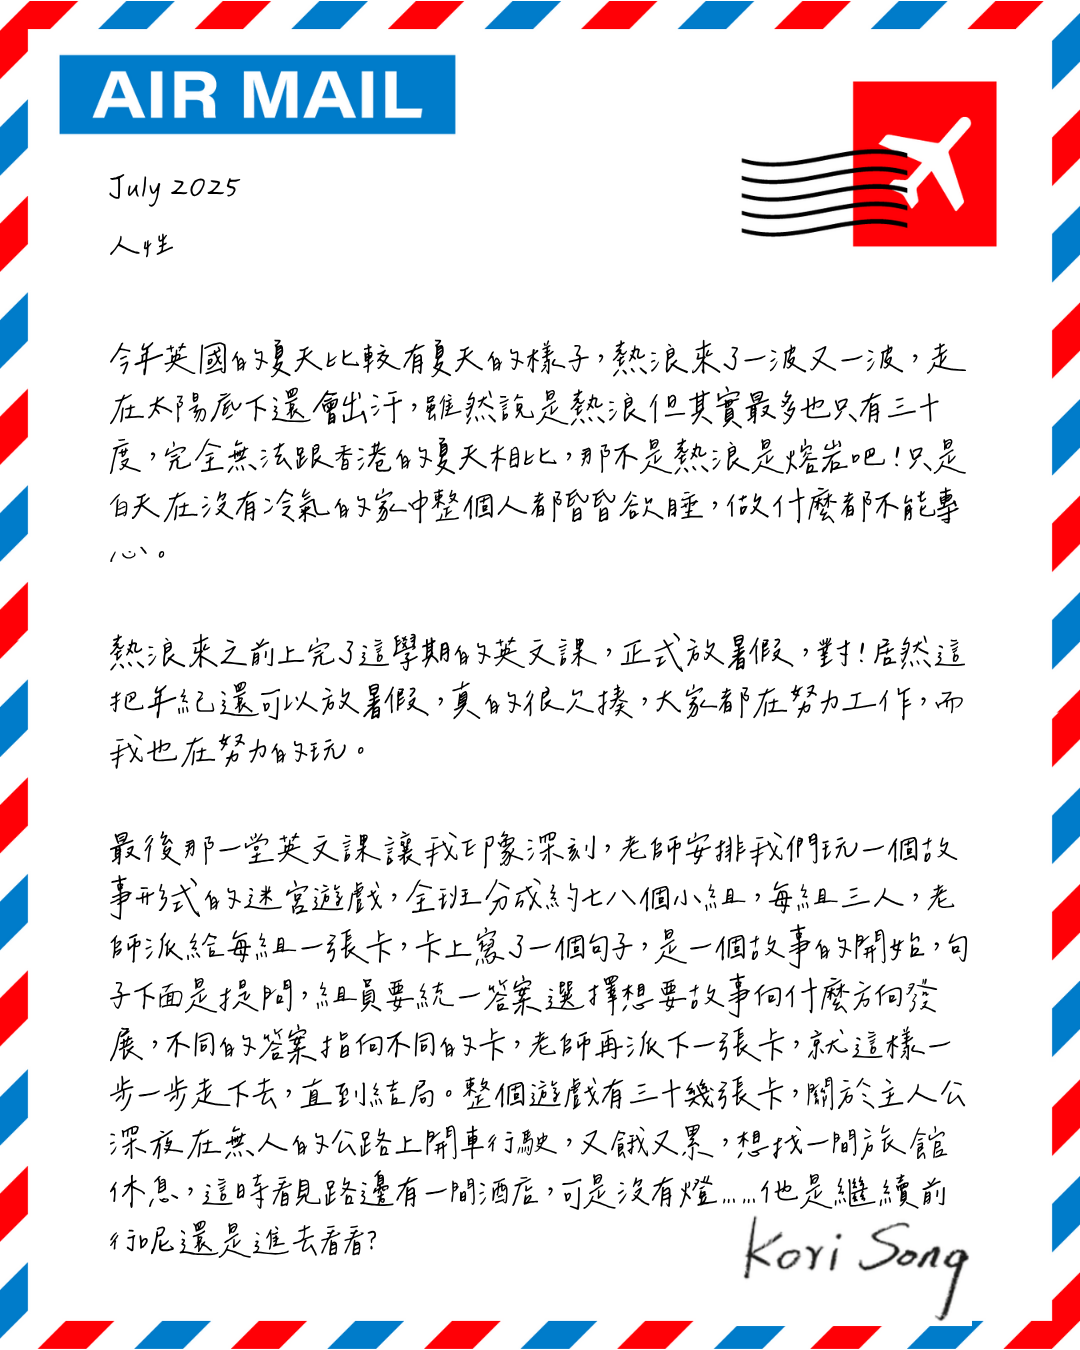 AIR MAIL
July 2025
人性
今年英國的夏天比較有夏天的樣子，熱浪來了一波又一波，走
在太陽底下還會出汗，雖然說是熱浪但其實最多也只有三十
度，完全無法跟香港的夏天相比，那不是熱浪是熔岩吧！只是
白天在沒有冷氣的家中整個人都昏昏欲睡，做什麼都不能專
心。
熱浪來之前上完了這學期的英文課，正式放暑假，對！居然這
把年紀還可以放暑假，真的很欠揍，大家都在努力工作，而
我也在努力的玩。
最後那一堂英文課讓我印象深刻，老師安排我們玩一個故
事形式的迷宮遊戲，全班分成約七八個小組，每組三人，老
師派給每組一張卡，卡上寫了一個句子，是一個故事的開始，句
子下面是提問，組員要統一答案選擇想要故事向什麼方向發
展，不同的答案指向不同的卡，老師再派下一張卡，就這樣一
步一步走下去，直到結局。整個遊戲有三十幾張卡，關於主人公
深夜在無人的公路上開車行駛，又餓又累，想找一間旅館
休息，這時看見路邊有一間酒店，可是沒有燈……他是繼續前
行呢還是進去看看？
Kori Song